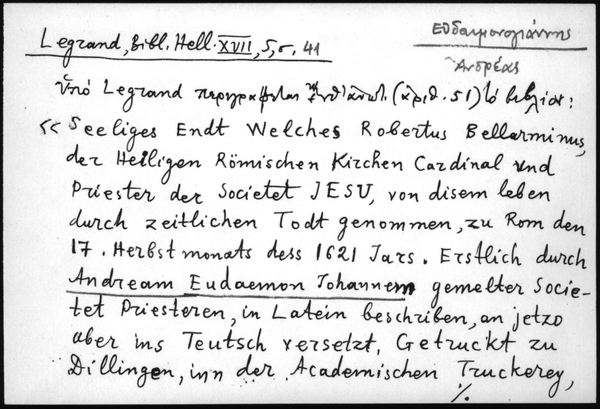 Legrand, Bibl. Hell. XVII, 5, σ. 41
Εὐδαιμονογιάννης
Ἀνδρέας
Ὑπό Legrand περιγράφεται (ἀριθ. 51) τό βιβλίον:
« Seeliges Endt Welches Robertus Bellarminus,
der Heiligen Römischen Kirchen Cardinal und
Priester der Societet JESU, von disem leben
durch zeitlichen Todt genommen, zu Rom den
17. Herbstmonats dess 1621 Jars. Erstlich durch
Andream Eudaemon Johannem gemelter Socie-
tet Priesteren, in Latein beschriben, an jetzo
aber ins Teutsch versetzt. Getruckt zu
Dillingen, inn der Academischen Truckerey,
./.